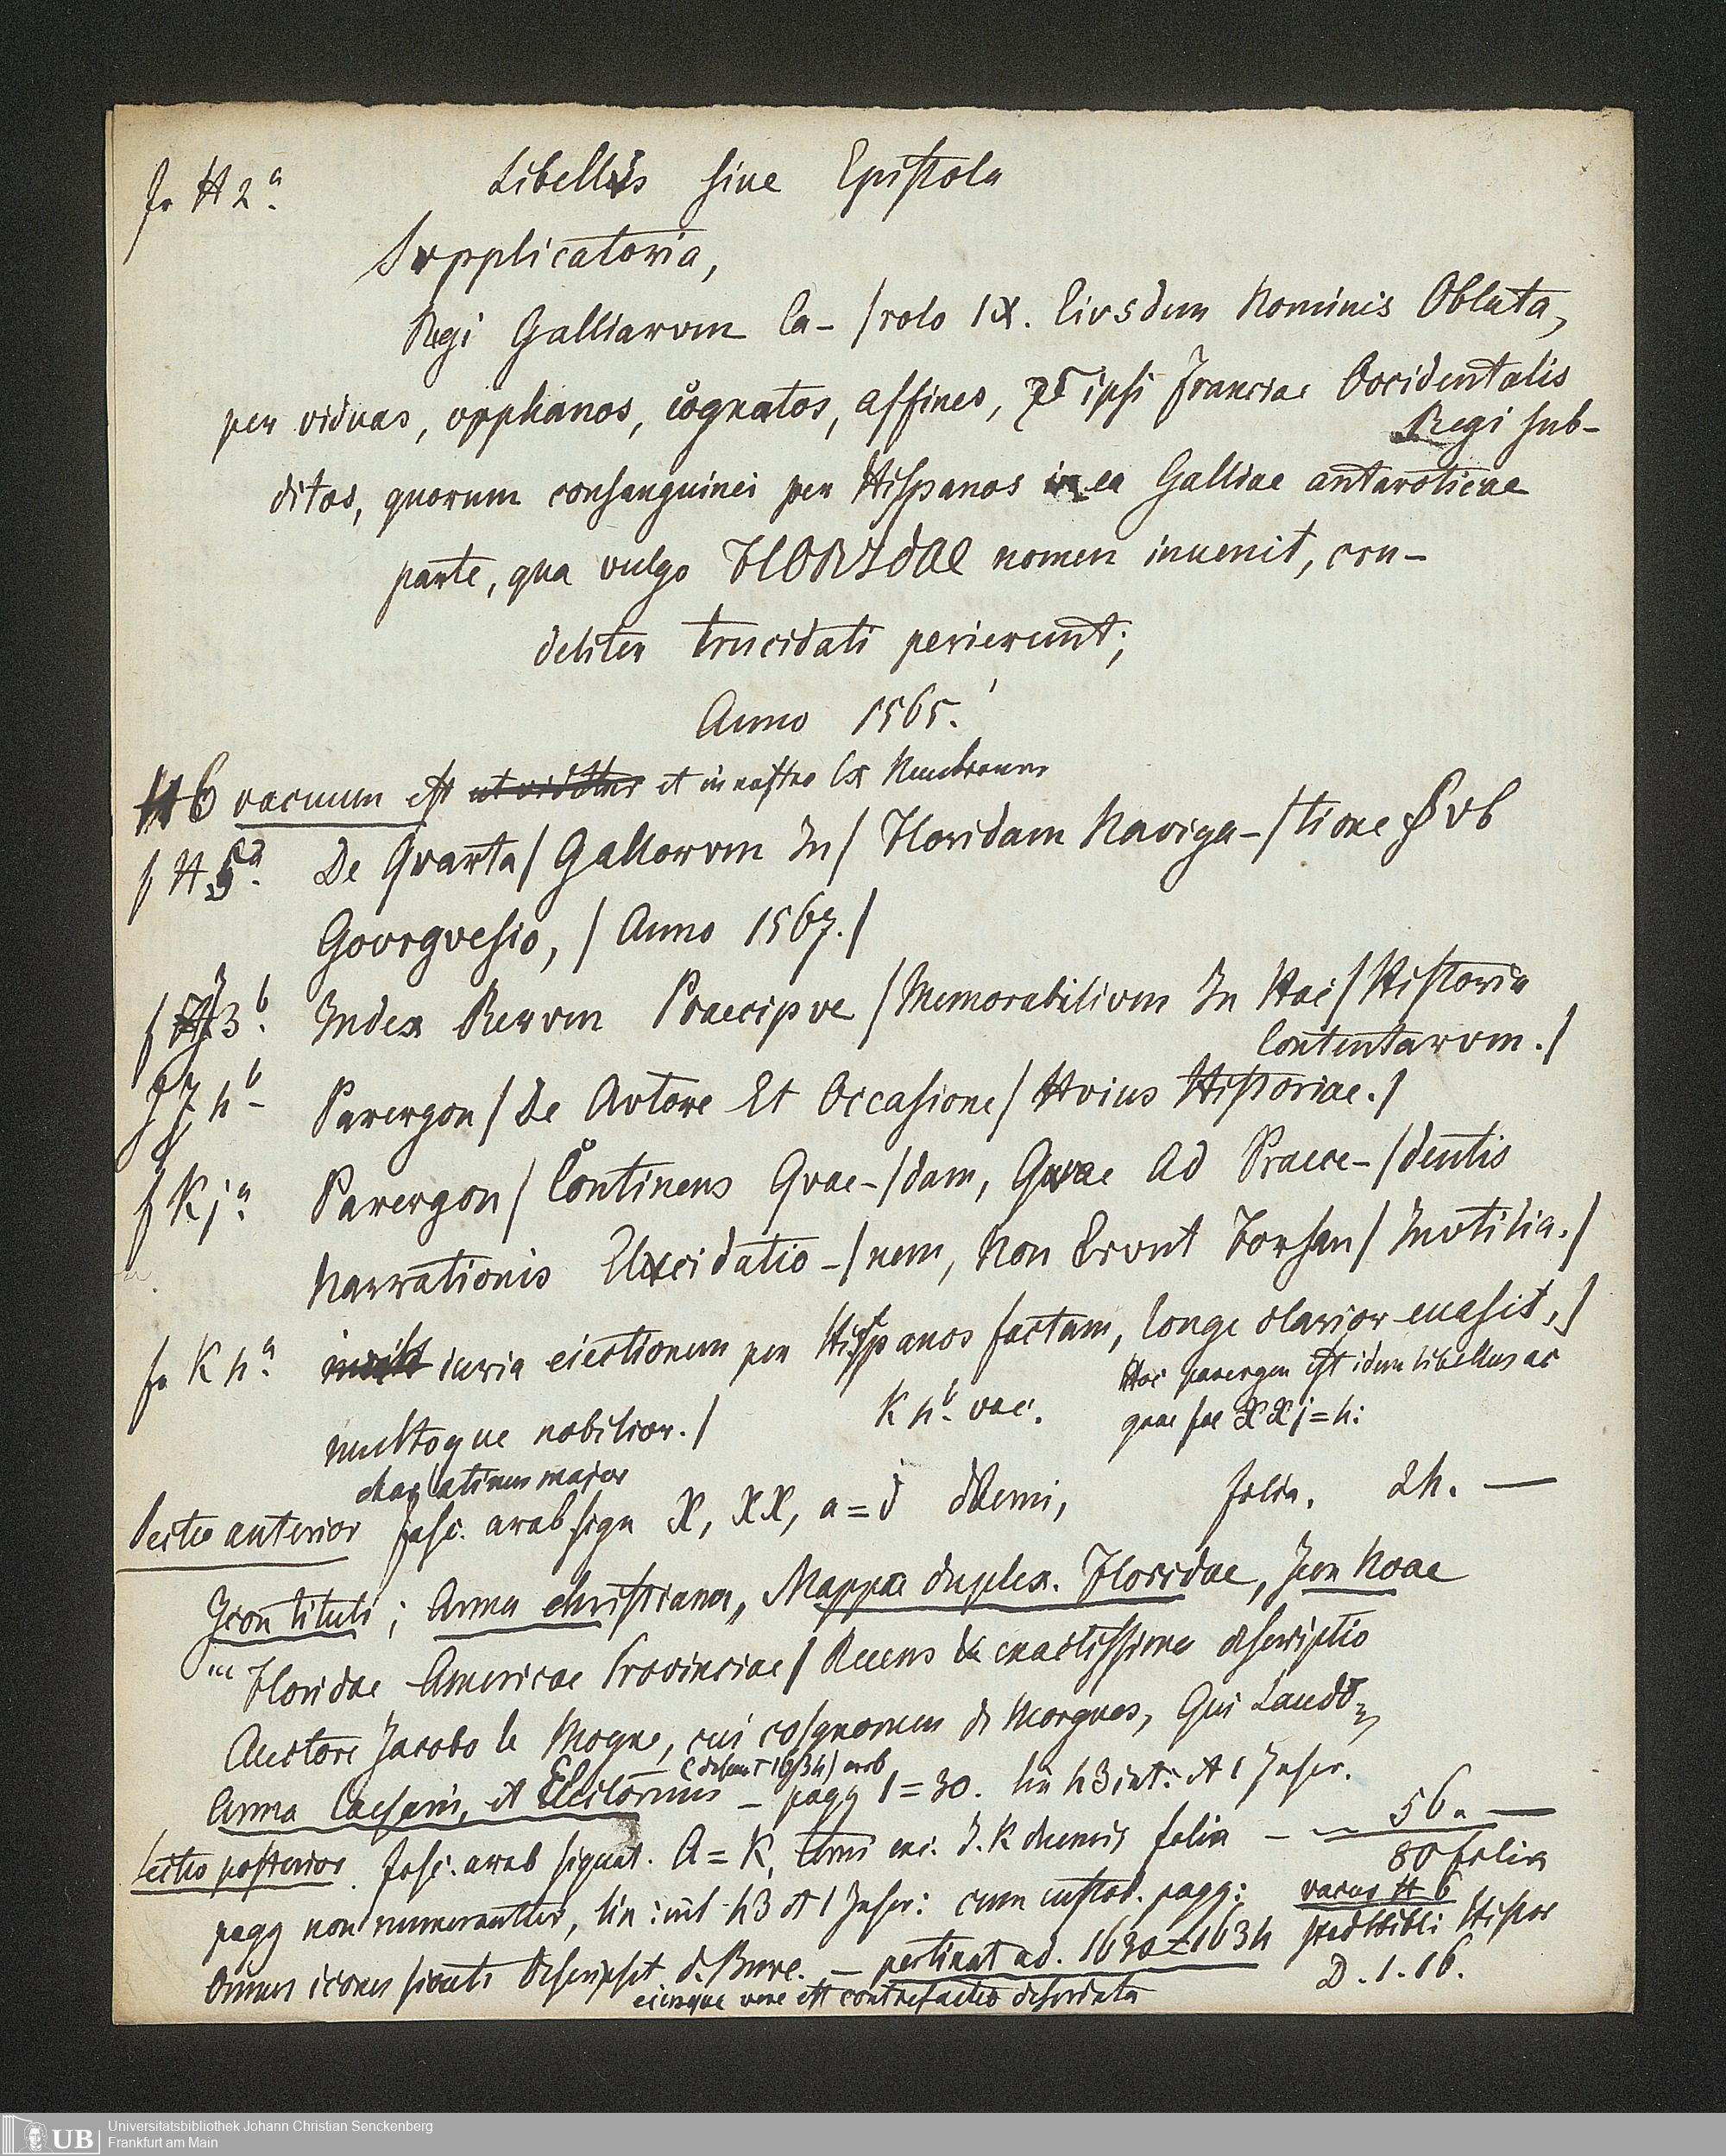 fo H 2a. Libellus siue Epistola
Svpplicatoria,
Regi Galliarvm Ca- / rolo IX. Eivsdem Nominis Oblata,
per viduas, orphanos, cognatos, affines, et ipsi Franciae Occidentalis
Regi sub-
ditos, quorum consanguinei per Hispanos in ea Galliae antarcticae
parte, qua vulgo FLORIDAE nomen inuenit, cru-
deliter trucidati perierunt;
Anno 1565.
H 6 vacuum est ut videtur et in nostro Ex
f H 5a. De Qvarta / Gallorvm In / Floridam Naviga- / tione Svb
Govrgvesio, / Anno 1567. /
f J 3b. Index Rervm Praecipve / Memorabilivm In Hac / Historia
Contentarvm. /
f J 4b Parergon / De Avtore Et Occasione / Hvius Historiae. /
f K ja. Parergon / Continens Qvae- / dam, Qvae Ad Praece- / dentis
Narrationis Elvcidatio- / nem, Non Ervnt Forsan / Invtilia. /
fo K 4a. iuria eiectionem per Hispanos factam, longe clarior euasit, /
multoque nobilior. / K 4b. vac. Hoc parergon est idem libellus ac
quae XX j = 4.
char latinus major
Sectio anterior fasc. arab. sign X, XX, a = d folia. 24. —
Icon tituli; Arma christiana, Mappa duplex. Floridae, Icon Noae
Floridae Americae Provinciae / Recens & exactissima descriptio
Auctore Jacobo le Moyne, cui cognomen de Morgues, Qui Laudō
(desunt 1634) arab
Arma Caesaris, et Electorum — pagg 1 = 30. lin 43 int. et 1 Inscr.
Sectio posterior. fasc. arab signat. A = K, exc. J. K folia — 56. —
80 folia
pagg non numerantur, lin: int 43 et 1 Inscr: cum custod. pagg: vacuo H 6
omnes icones sicuti descripsit de Bure. — pertinet ad. 1630 = 1634 Histor
eiusque vere est contrefactio D. 1. 16.
Universitätsbibliothek Johann Christian Senckenberg
Frankfurt am Main
UB